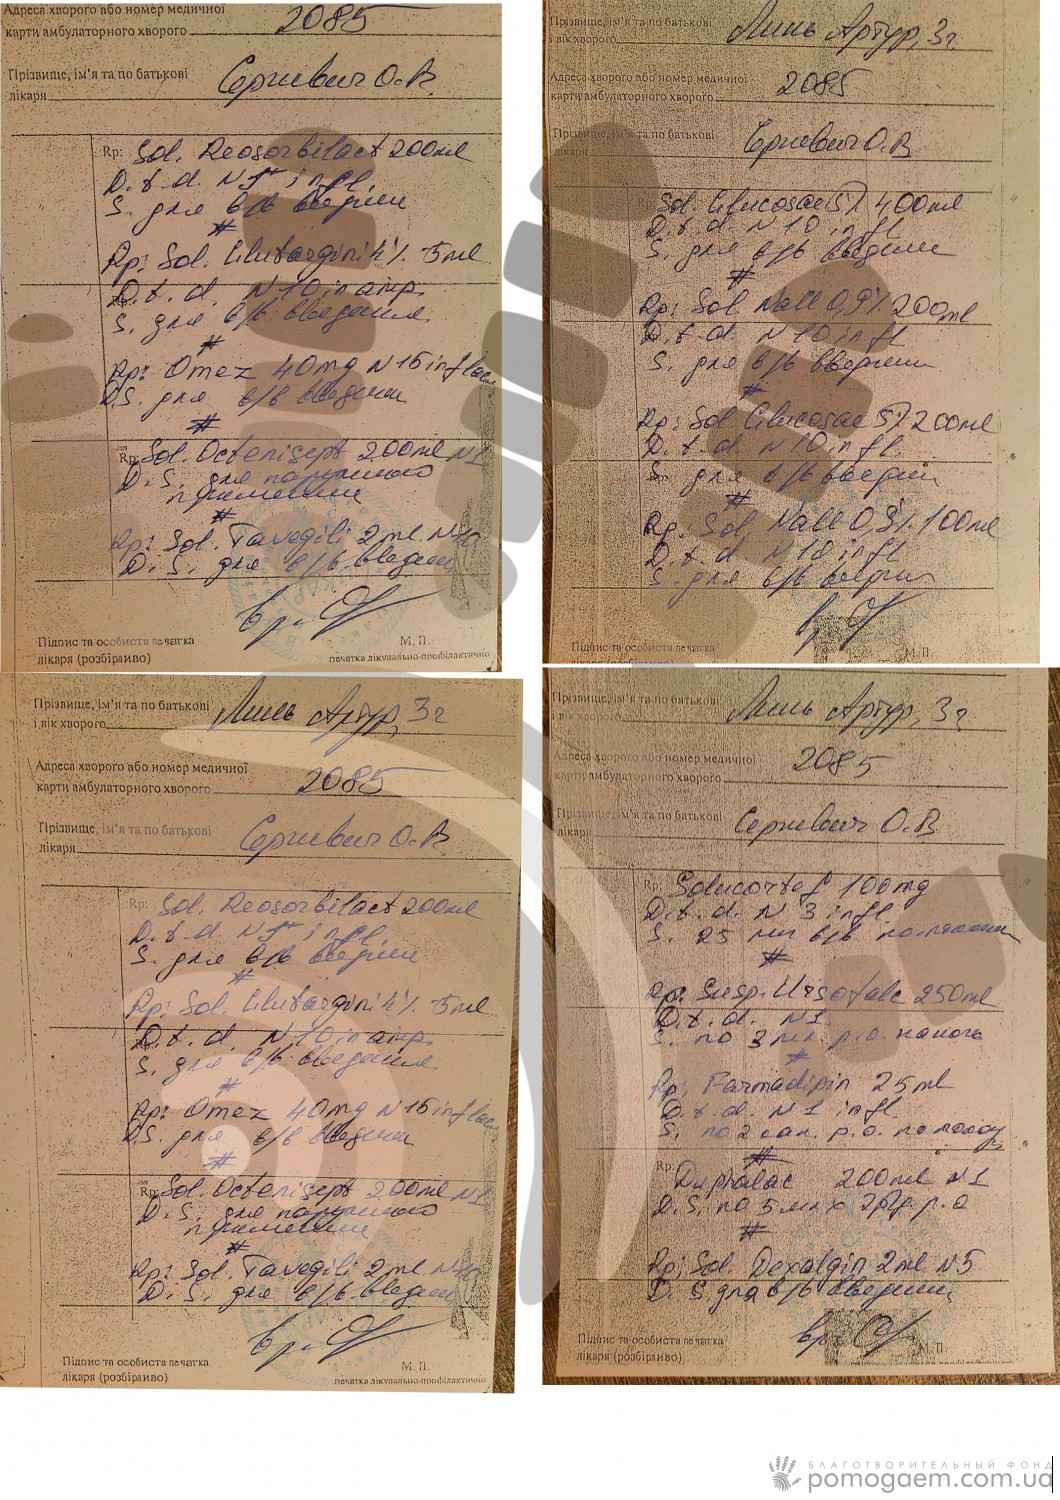 Адреса хворого або номер медичної
карти амбулаторного хворого 2085
Прізвище, ім'я та по батькові
лікаря О.В.
Rp: Sol. Reosorbilact 200ml
D.t.d. N inf.
S. для в/в введения
#
Rp: Sol. Glutargini 4% 5ml
D.t.d. N 10 in amp.
S. для в/в введения
#
Rp: Omez 40mg N 15 in flac
D.S. для в/в введения
#
Rp: Sol. Octenisept 200ml N1
D.S. для наружного
применения
#
Rp: Sol. Tavegili 2ml N10
D.S. для в/в введения
Підпис та особиста печатка М. П.
лікаря (розбірливо) печатка лікувально-профілактично
Прізвище, ім'я та по батькові
і вік хворого Линь Артур, 3г
Адреса хворого або номер медичної
карти амбулаторного хворого 2085
Прізвище, ім'я та по батькові
лікаря О.В
Sol. Glucosae 5% 400ml
D.t.d. N 10 in fl
S. для в/в введения
#
Rp: Sol NaCl 0,9% 200ml
D.t.d. N 10 in fl
S. для в/в введения
#
Rp: Sol Glucosae 5% 200ml
D.t.d. N 10 in fl.
S. для в/в введения
#
Rp: Sol. NaCl 0,9% 100ml
D.t.d. N 10 in fl
S. для в/в введения
Підпис та особиста печатка М. П.
Прізвище, ім'я та по батькові
і вік хворого Линь Артур, 3г
Адреса хворого або номер медичної
карти амбулаторного хворого 2085
Прізвище, ім'я та по батькові
лікаря О.В.
Rp: Sol. Reosorbilact 200ml
D.t.d. N inf.
S. для в/в введения
#
Rp: Sol. Glutargini 4% 5ml
D.t.d. N 10 in amp.
S. для в/в введения
#
Rp: Omez 40mg N 15 in flac
D.S. для в/в введения
#
Rp: Sol. Octenisept 200ml N1
D.S. для наружного
применения
#
Rp: Sol. Tavegili 2ml N10
D.S. для в/в введения
Підпис та особиста печатка М. П.
лікаря (розбірливо) печатка лікувально-профілактично
Прізвище, ім'я та по батькові
і вік хворого Линь Артур, 3г
Адреса хворого або номер медичної
карти амбулаторного хворого 2085
Прізвище, ім'я та по батькові
лікаря О.В.
Rp: Solucortef 100mg
D.t.d. N 3 in fl
S. 25 мг в/в по
#
Rp: Susp. Ursofalc 250ml
D.t.d. N1
S. по 3 мл. р.о. на ночь
#
Rp: Farmadipin 25ml
D.t.d. N 1 in fl.
S. по 2 кап. р.о.
#
Rp: Duphalac 200ml N1
D.S. по 5 мл х 2 р.о
#
Rp: Sol. Dexalgin 2ml N5
D.S. для в/в введения
Підпис та особиста печатка М. П.
лікаря (розбірливо)
БЛАГОТВОРИТЕЛЬНЫЙ ФОНД
pomogaem.com.ua